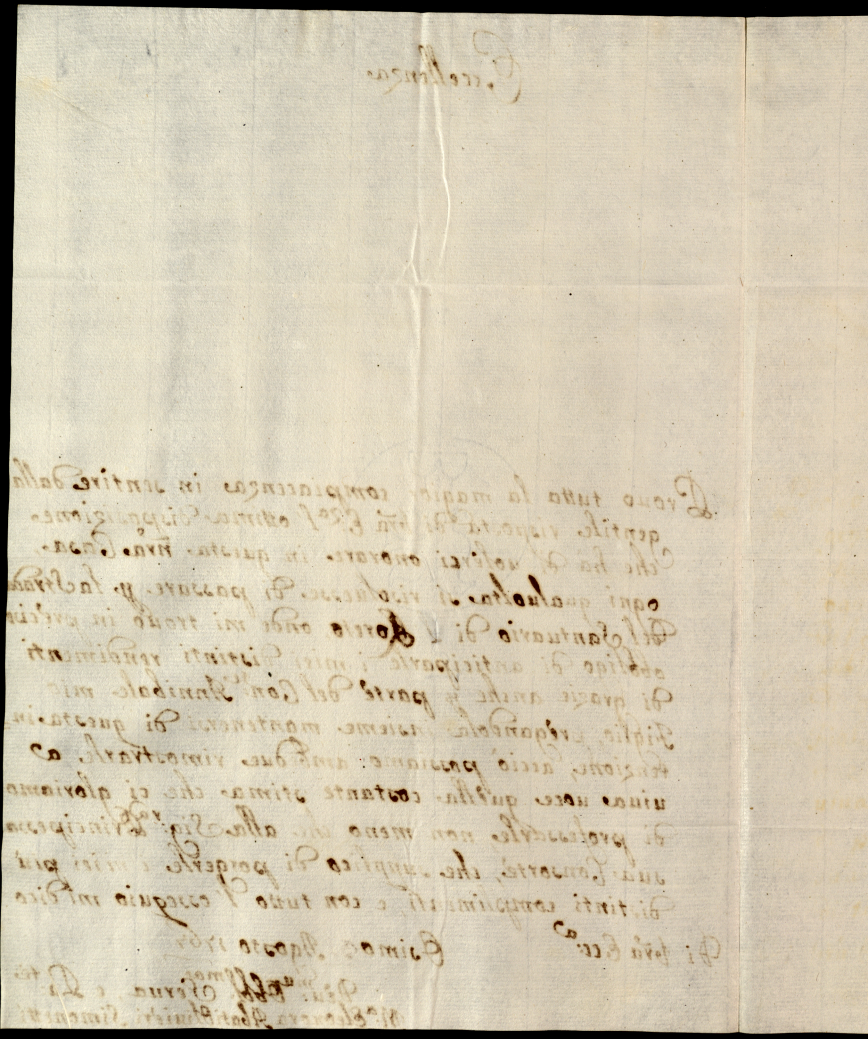 Eccellenza
Prouo tutta la maggior compiacenza in sentire dalla
gentile risposta di Vrã Ecc. l'ottima disposizione,
che ha di uolerci onorare in questa nrã Casa,
ogni qualuolta si risoluesse di passare p. la Strada
del Santuario di Loreto onde mi trouo in preciso
obbligo di anticiparle i miei distinti rendimenti
di grazie anche p parte del Con. Annibale mio
Figlio, pregandola insieme mantenersi di questa in,
tenzione, acciò possiamo ambidue rimostrarle a
uiua uoce quella costante stima che ci gloriamo
di professarle non meno che alla Sig.ra Principessa
sua Consorte, che supplico di porgerle i miei più
distinti complimenti, e con tutto l'ossequio mi dico
Di Vrã Ecc.a
Osimo Agosto
Serua e
M.a Eleonora Simonetti